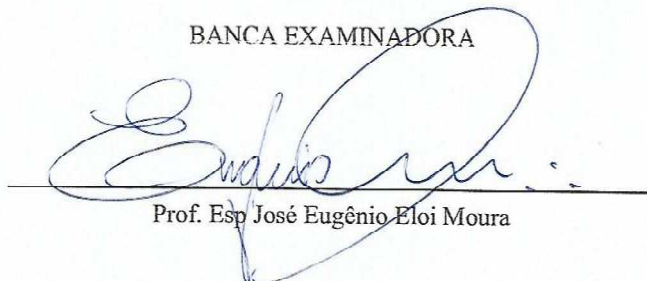 BANCA EXAMINADORA
Prof. Esp José Eugênio Eloi Moura